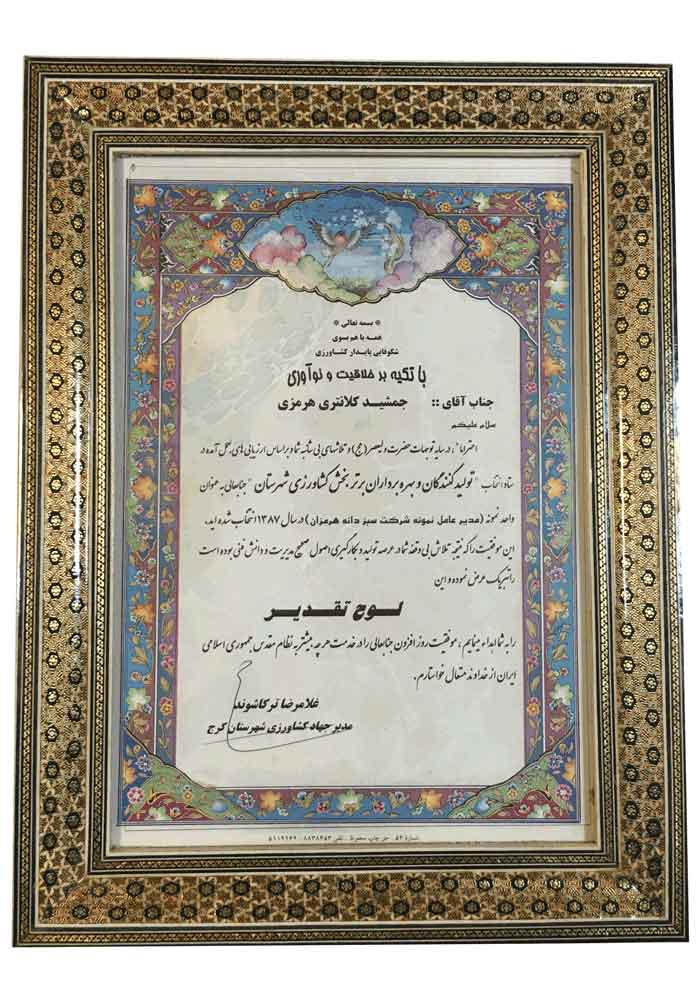 * بسمه تعالی *
همه با هم بسوی
شکوفایی پایدار کشاورزی
با تکیه بر خلاقیت و نوآوری
جناب آقای :: جمشید کلانتری هرمزی
سلام علیکم
احتراماً ، در سایه توجهات حضرت ولیعصر (عج) و تلاشهای بی شائبه شما و بر اساس ارزیابی های بعمل آمده در
ستاد انتخاب " تولید کنندگان و بهره برداران برتر بخش کشاورزی شهرستان " جنابعالی به عنوان
واحد نمونه (مدیر عامل نمونه شرکت سبز دانه هرمزان) در سال ۱۳۸۷ انتخاب شده اید.
این موفقیت را که نتیجه تلاش بی وقفه شما در عرصه تولید و بکارگیری اصول صحیح مدیریت و دانش فنی بوده است
را تبریک عرض نموده و این
لوح تقدیر
را به شما اهداء مینمایم ، موفقیت روز افزون جنابعالی را در خدمت هر چه بیشتر به نظام مقدس جمهوری اسلامی
ایران از خداوند متعال خواستارم.
غلامرضا ترکاشوند
مدیر جهاد کشاورزی شهرستان کرج
شماره ۵۴ - حق چاپ محفوظ - تلفن ۸۸۳۸۴۵۳ - ۵۱۱۹۱۵۹